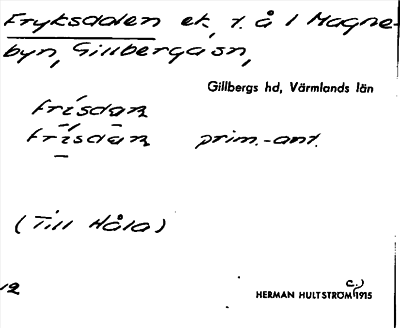 Fryksdalen ek, t. å i Magne-
byn, Gillberga sn,
Gillbergs hd, Värmlands län
prim.-ant.
(Till Håla)
12
HERMAN HULTSTRÖM c.) 1915